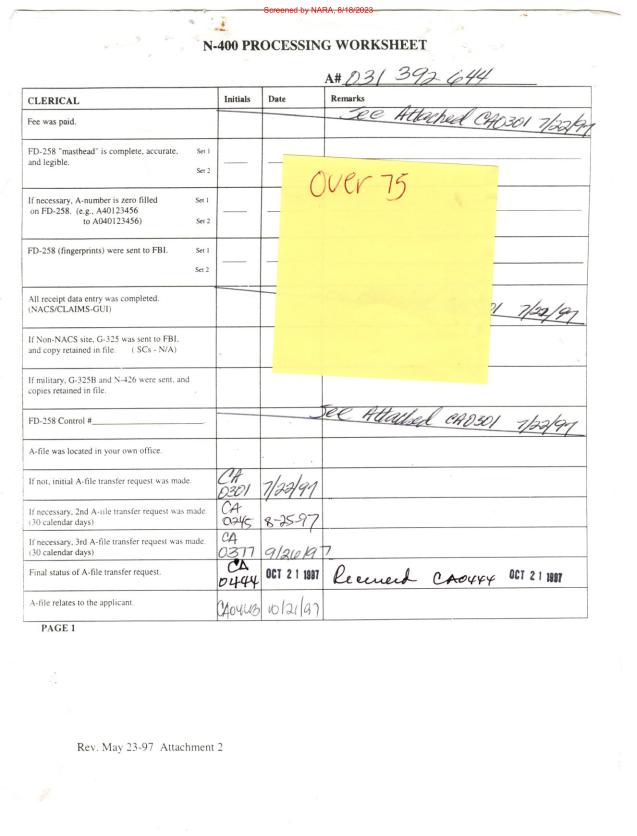 Screened by NARA, 8/18/2023
N-400 PROCESSING WORKSHEET
A# 031 392 644
CLERICAL Initials Date Remarks
Fee was paid. See Attached CA0301 7/22/97
FD-258 "masthead" is complete, accurate, Set 1
and legible.
Set 2
Over 75
If necessary, A-number is zero filled Set 1
on FD-258. (e.g., A40123456
to A040123456) Set 2
FD-258 (fingerprints) were sent to FBI. Set 1
Set 2
All receipt data entry was completed.
(NACS/CLAIMS-GUI) 1 7/22/97
If Non-NACS site, G-325 was sent to FBI,
and copy retained in file. ( SCs - N/A)
If military, G-325B and N-426 were sent, and
copies retained in file.
FD-258 Control # See Attached CA0301 7/22/97
A-file was located in your own office.
If not, initial A-file transfer request was made. CA 0301 7/22/97
If necessary, 2nd A-file transfer request was made. CA 0245 8-25-97
(30 calendar days)
If necessary, 3rd A-file transfer request was made. CA 0377 9/26/97
(30 calendar days)
Final status of A-file transfer request. CA 0444 OCT 21 1997 Received CA0444 OCT 21 1997
A-file relates to the applicant. 10/21/97
PAGE 1
Rev. May 23-97 Attachment 2